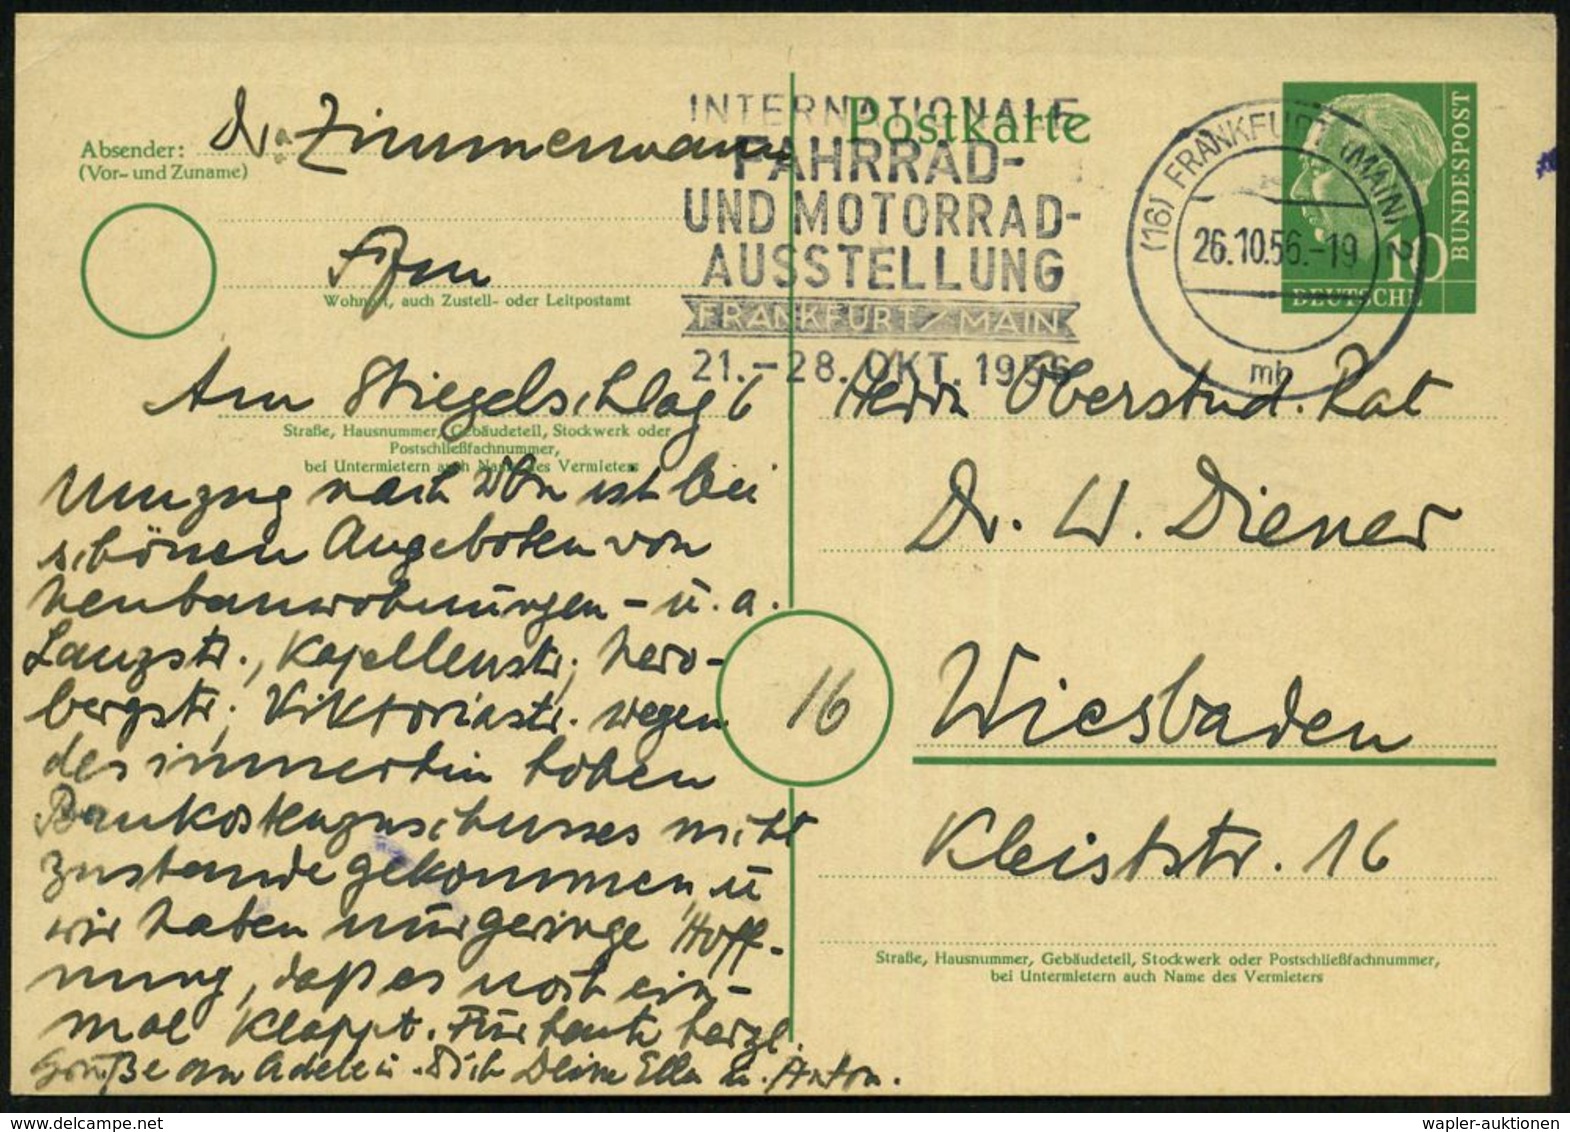 Absender: Dr. Zimmermann
(Vor- und Zuname)
Ffm
Wohnort, auch Zustell- oder Leitpostamt
Am Stiegelschlag 6
Straße, Hausnummer, Gebäudeteil, Stockwerk oder
Postschließfachnummer,
bei Untermietern auch Name des Vermieters
Umzug nach Wbn ist bei
schönen Angeboten von
Neubauwohnungen - u. a.
Lanzstr., Kapellenstr., Nero-
bergstr., Viktoriastr. wegen
des immerhin hohen
Baukostenzuschusses nicht
zustande gekommen u
wir haben nur geringe Hoff-
nung, daß es noch ein-
mal klappt. Für heute herzl.
Grüße an Adele u. Dich Deine Ella u. Anton.
Postkarte
INTERNATIONALE
FAHRRAD-
UND MOTORRAD-
AUSSTELLUNG
FRANKFURT/MAIN
21.-28. OKT. 1956
(16) FRANKFURT (MAIN) 2
26.10.56.-19
mb
10
DEUTSCHE
BUNDESPOST
Herrn Oberstud. Rat
Dr. W. Diener
16
Wiesbaden
Kleiststr. 16
Straße, Hausnummer, Gebäudeteil, Stockwerk oder Postschließfachnummer,
bei Untermietern auch Name des Vermieters
wapler-auktionen